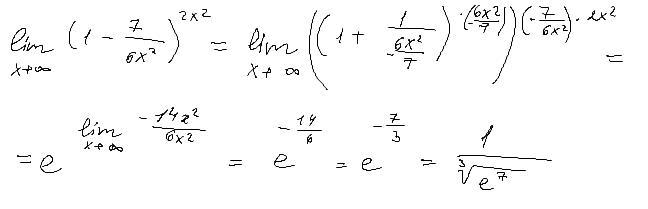 lim x→∞ (1 - 7/6x²)^2x² = lim x→∞ ((1 + 1/(-6x²/7))^·(-6x²/7))^(-7/6x²)·2x² =
= e^lim x→∞ -14x²/6x² = e^-14/6 = e^-7/3 = 1/∛e⁷